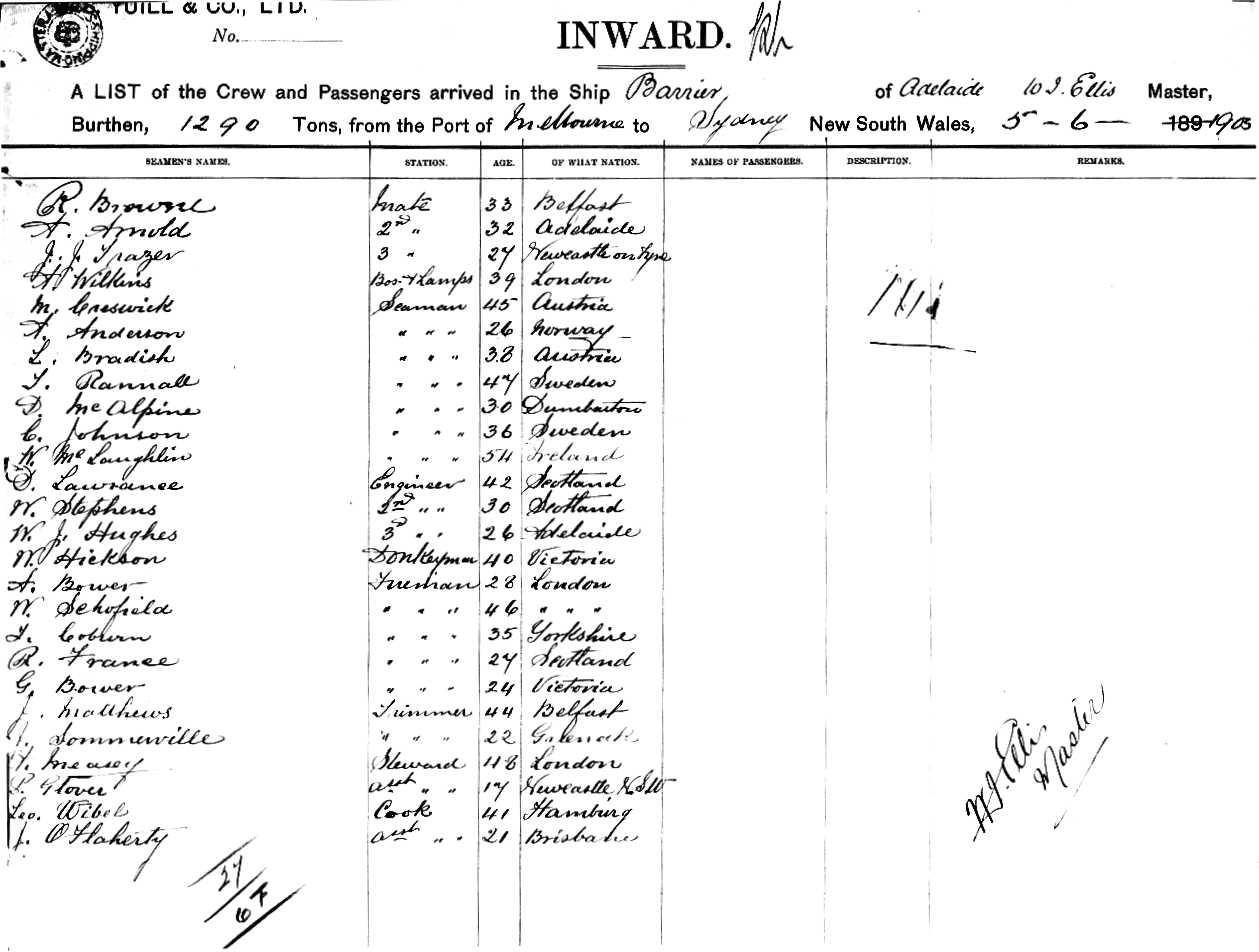 YUILL & CO., LTD.
No.
INWARD.
A LIST of the Crew and Passengers arrived in the Ship Barrier, of Adelaide W J. Ellis Master,
Burthen, 1290 Tons, from the Port of Melbourne to Sydney New South Wales, 5 - 6 - 189 1903
SEAMEN'S NAMES. STATION. AGE. OF WHAT NATION. NAMES OF PASSENGERS. DESCRIPTION. REMARKS.
R. Browne Mate 33 Belfast
A. Arnold 2nd " 32 Adelaide
J. J. Frazer 3 " 27 Newcastle on Tyne
H Wilkins Bos. & Lamps 39 London
M. Creswick Seaman 45 Austria
A. Anderson " " " 26 Norway
L. Bradish " " " 38 Austria
T. Rannall " " " 47 Sweden
D. McAlpine " " " 30 Dumbarton
C. Johnson " " " 36 Sweden
W. McLaughlin " " " 54 Ireland
D. Lawrance Engineer 42 Scotland
W. Stephens 2nd " " 30 Scotland
W. J. Hughes 3d " " 26 Adelaide
W. Hickson Donkeyman 40 Victoria
A. Bower Fireman 28 London
W. Schofield " " " 46 " " "
T. Coburn " " " 35 Yorkshire
R. France " " " 27 Scotland
G. Bower " " " 24 Victoria
J. Matthews Trimmer 44 Belfast
Sommerville " " " 22 Greenock
Measey Steward 48 London
P. Glover asst " " 17 Newcastle N.S.W
Leo. Wibel Cook 41 Hamburg
J. O'Flaherty asst " " 21 Brisbane
W J. Ellis
Master
27